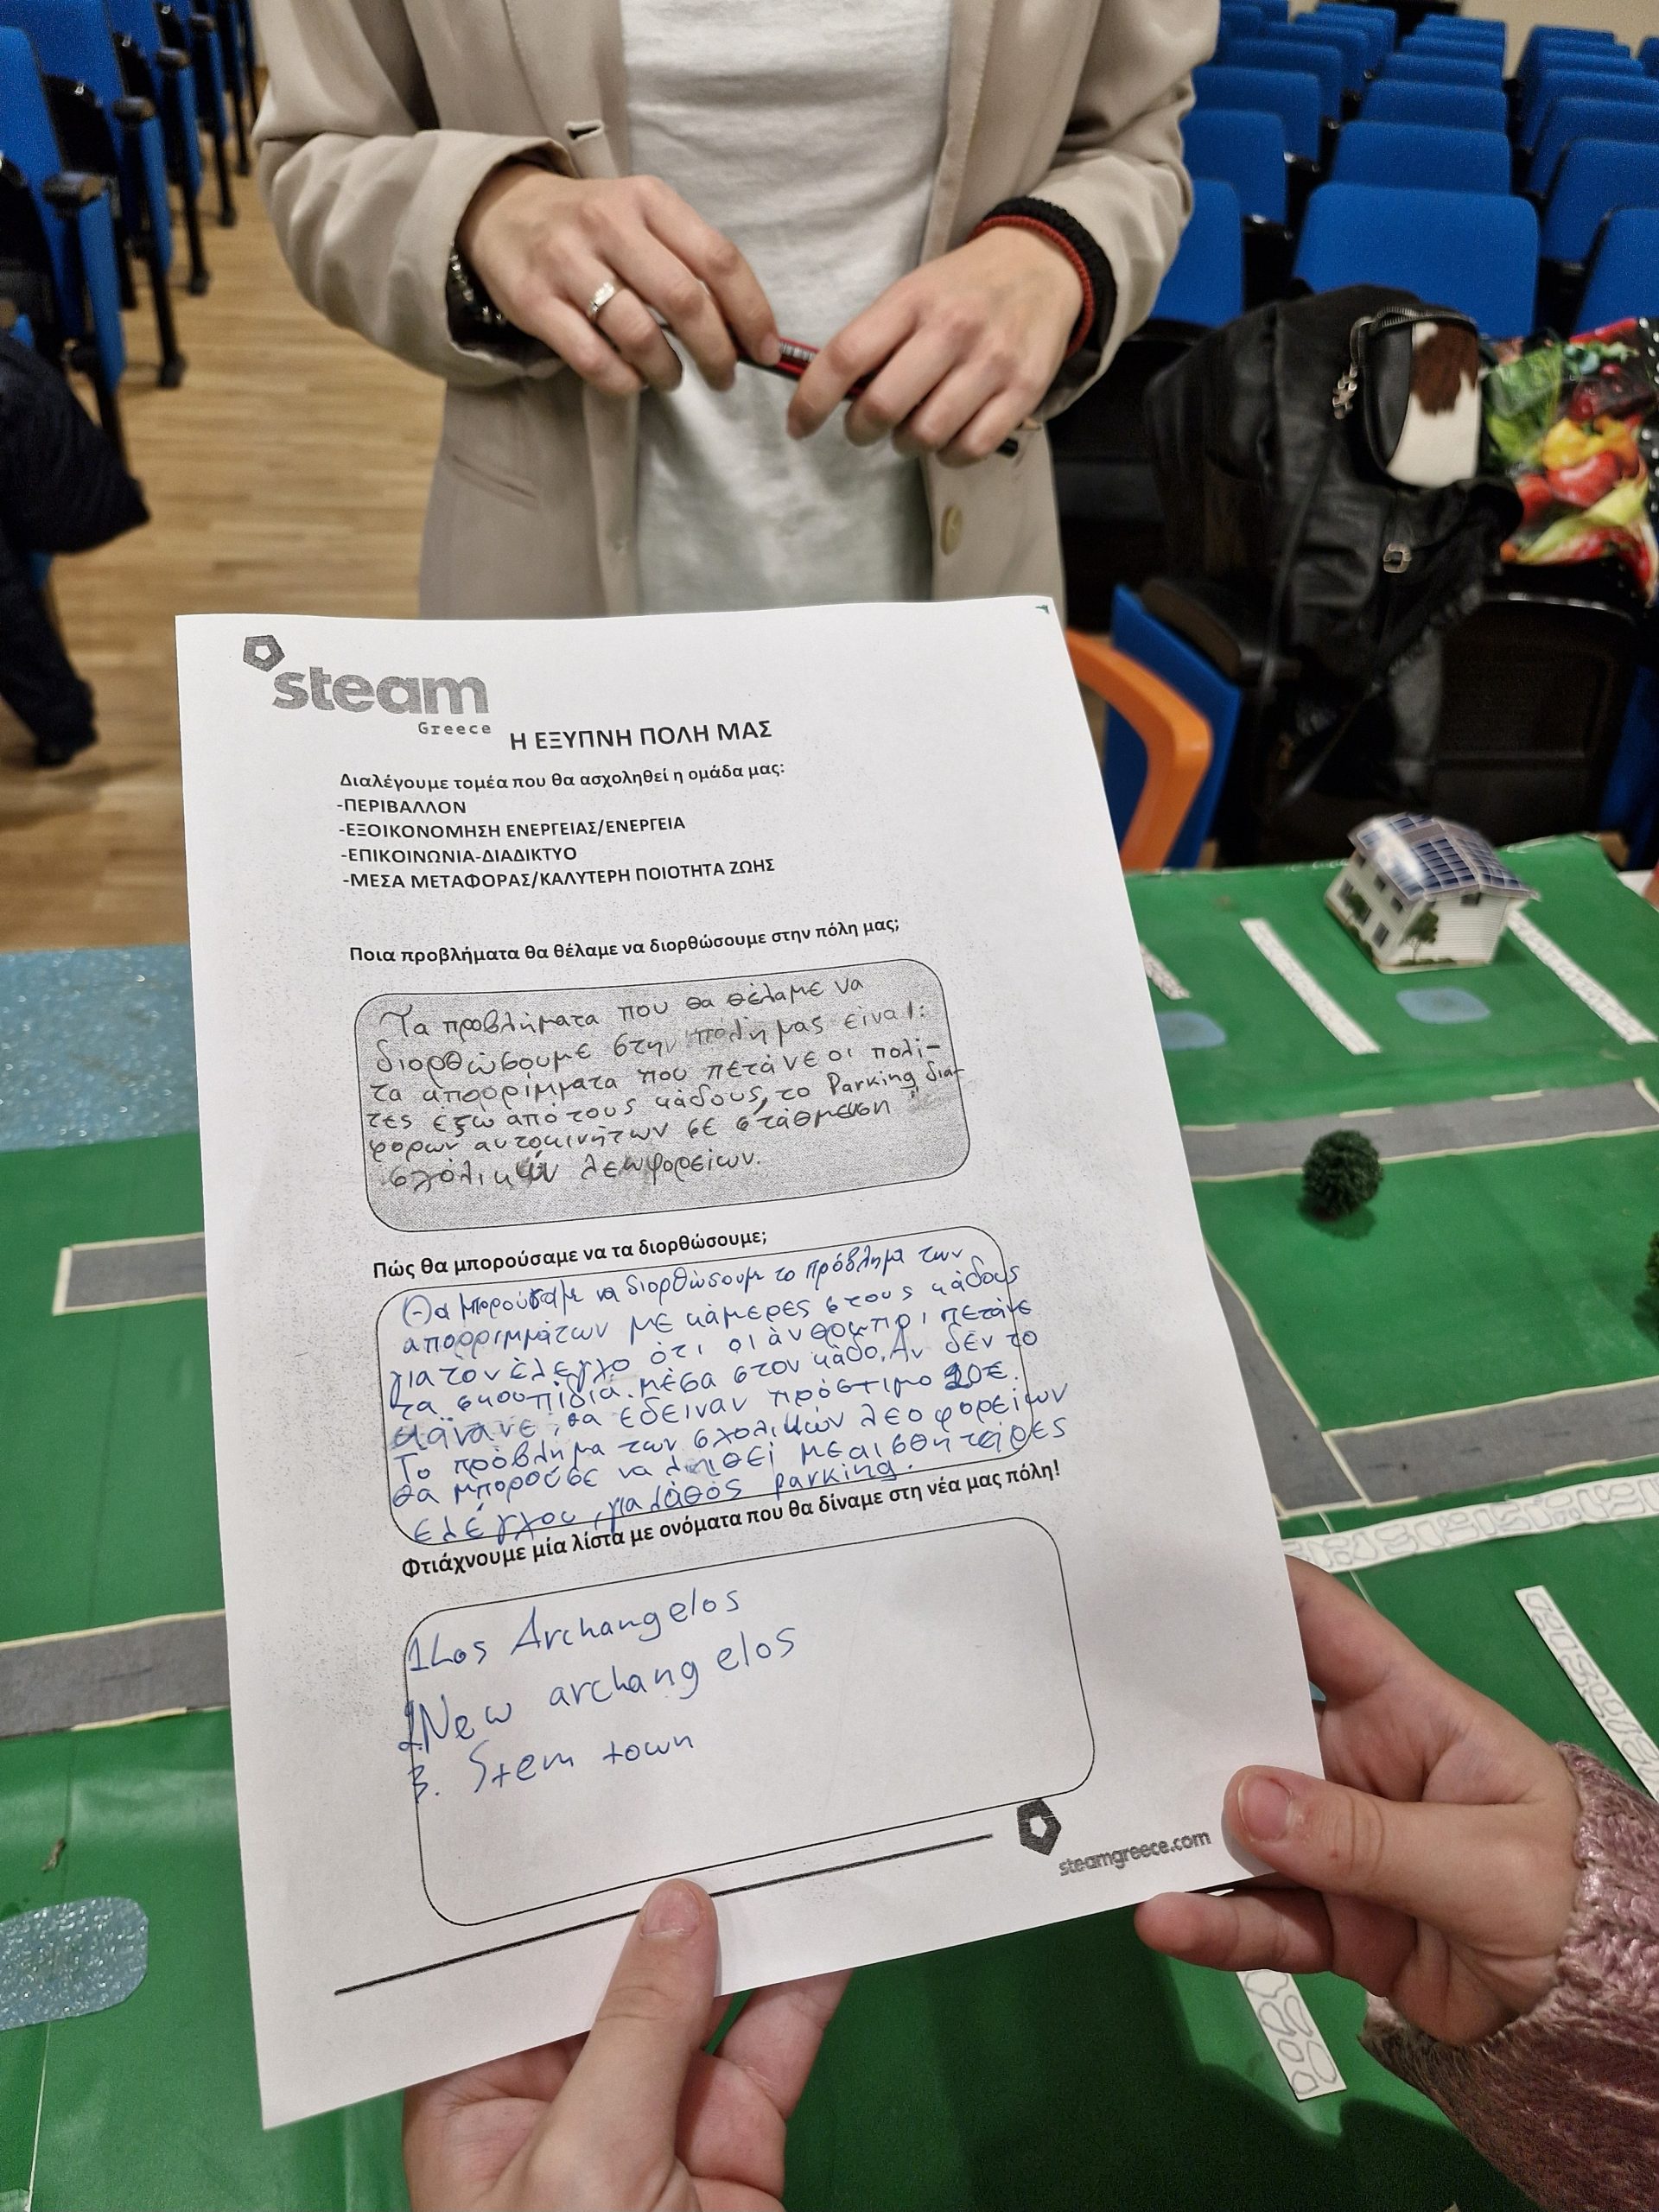 steam
Greece
Η ΕΞΥΠΝΗ ΠΟΛΗ ΜΑΣ
Διαλέγουμε τομέα που θα ασχοληθεί η ομάδα μας:
-ΠΕΡΙΒΑΛΛΟΝ
-ΕΞΟΙΚΟΝΟΜΗΣΗ ΕΝΕΡΓΕΙΑΣ/ΕΝΕΡΓΕΙΑ
-ΕΠΙΚΟΙΝΩΝΙΑ-ΔΙΑΔΙΚΤΥΟ
-ΜΕΣΑ ΜΕΤΑΦΟΡΑΣ/ΚΑΛΥΤΕΡΗ ΠΟΙΟΤΗΤΑ ΖΩΗΣ
Ποια προβλήματα θα θέλαμε να διορθώσουμε στην πόλη μας;
Τα προβλήματα που θα θέλαμε να
διορθώσουμε στην πόλη μας είναι:
τα απορρίμματα που πετάνε οι πολί-
τες έξω από τους κάδους, το Parking δια-
φορων αυτοκινήτων σε στάθμευση
σχολικών λεωφορείων.
Πώς θα μπορούσαμε να τα διορθώσουμε;
Θα μπορούσαμε να διορθώσουμε το πρόβλημα των
απορριμμάτων με κάμερες στους κάδους
για τον έλεγχο ότι οι άνθρωποι πετάνε
τα σκουπίδια μέσα στον κάδο. Αν δεν το
κάνανε, θα έδειναν πρόστιμο 20€.
Το πρόβλημα των σχολικών λεοφορείων
θα μπορούσε να λυθεί με αισθητήρες
ελέγχου, για λάθος parking.
Φτιάχνουμε μία λίστα με ονόματα που θα δίναμε στη νέα μας πόλη!
1Los Archangelos
2New archangelos
3. Stem town
steamgreece.com